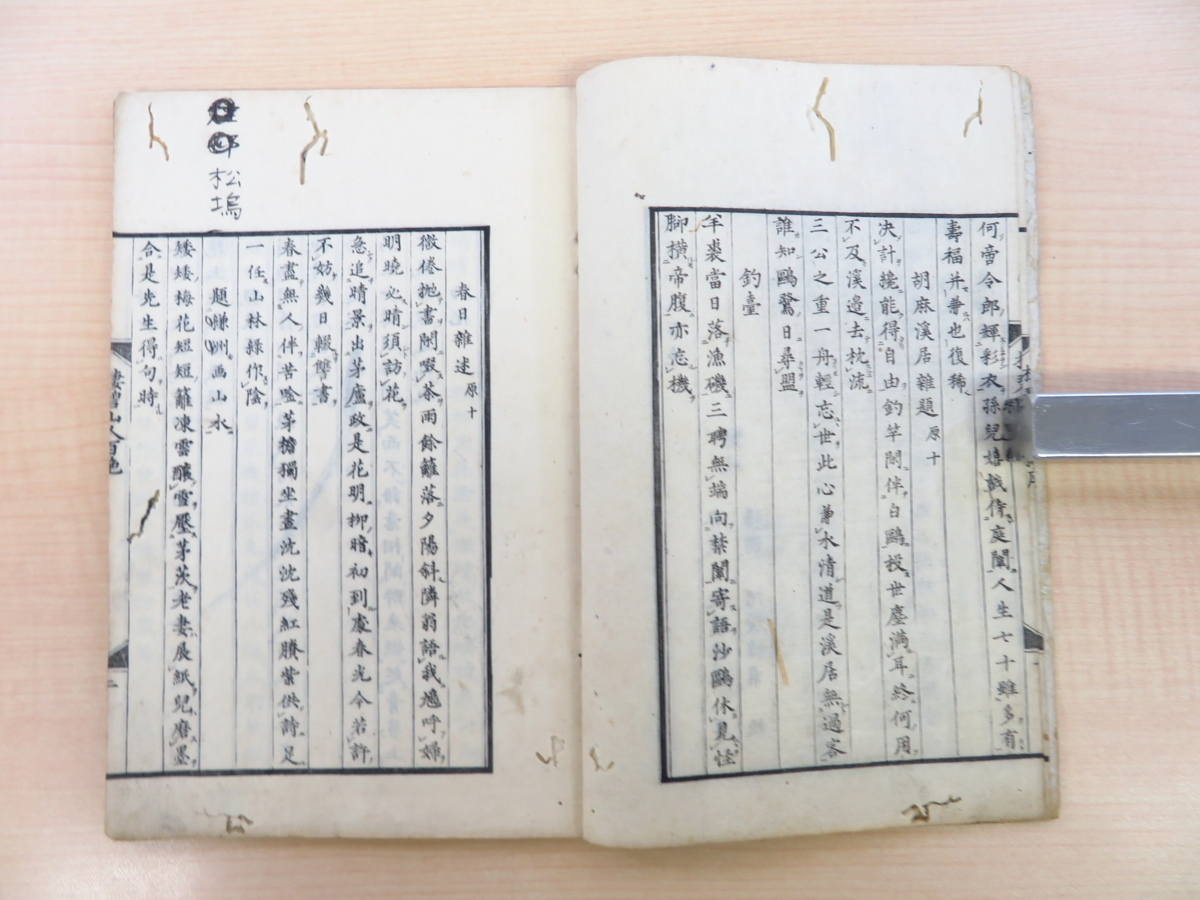 何啻令郎輝彩衣孫兒嬉戲侍庭闈人生七十雖多有
壽福并兼也復稀
胡麻溪居雜題原十
決計攙能得自由釣竿閑伴白鷗投世塵滿耳終何用
不及溪邊去枕流
三公之重一舟輕忘世此心兼水清道是溪居無過客
誰知鷗鷺日尋盟
釣臺
羊裘當日落漁磯三聘無端向禁闈寄語沙鷗休見怪
脚橫帝腹亦忘機
松塢
春日雜述原十
微倦抛書閑啜茶雨餘籬落夕陽斜隣翁語我還呼婦
明曉必晴須訪花
急追晴景出茅廬政是花明柳暗初到處春光今若許
不妨幾日輟讐書
春盡無人伴苦唫茅檐獨坐晝沈沈殘紅賸紫供詩足
一任山林綠作陰
題洲画山水
矮矮梅花短短籬凍雲釀雪壓茅茨老妻展紙兒磨墨
合是先生得句時